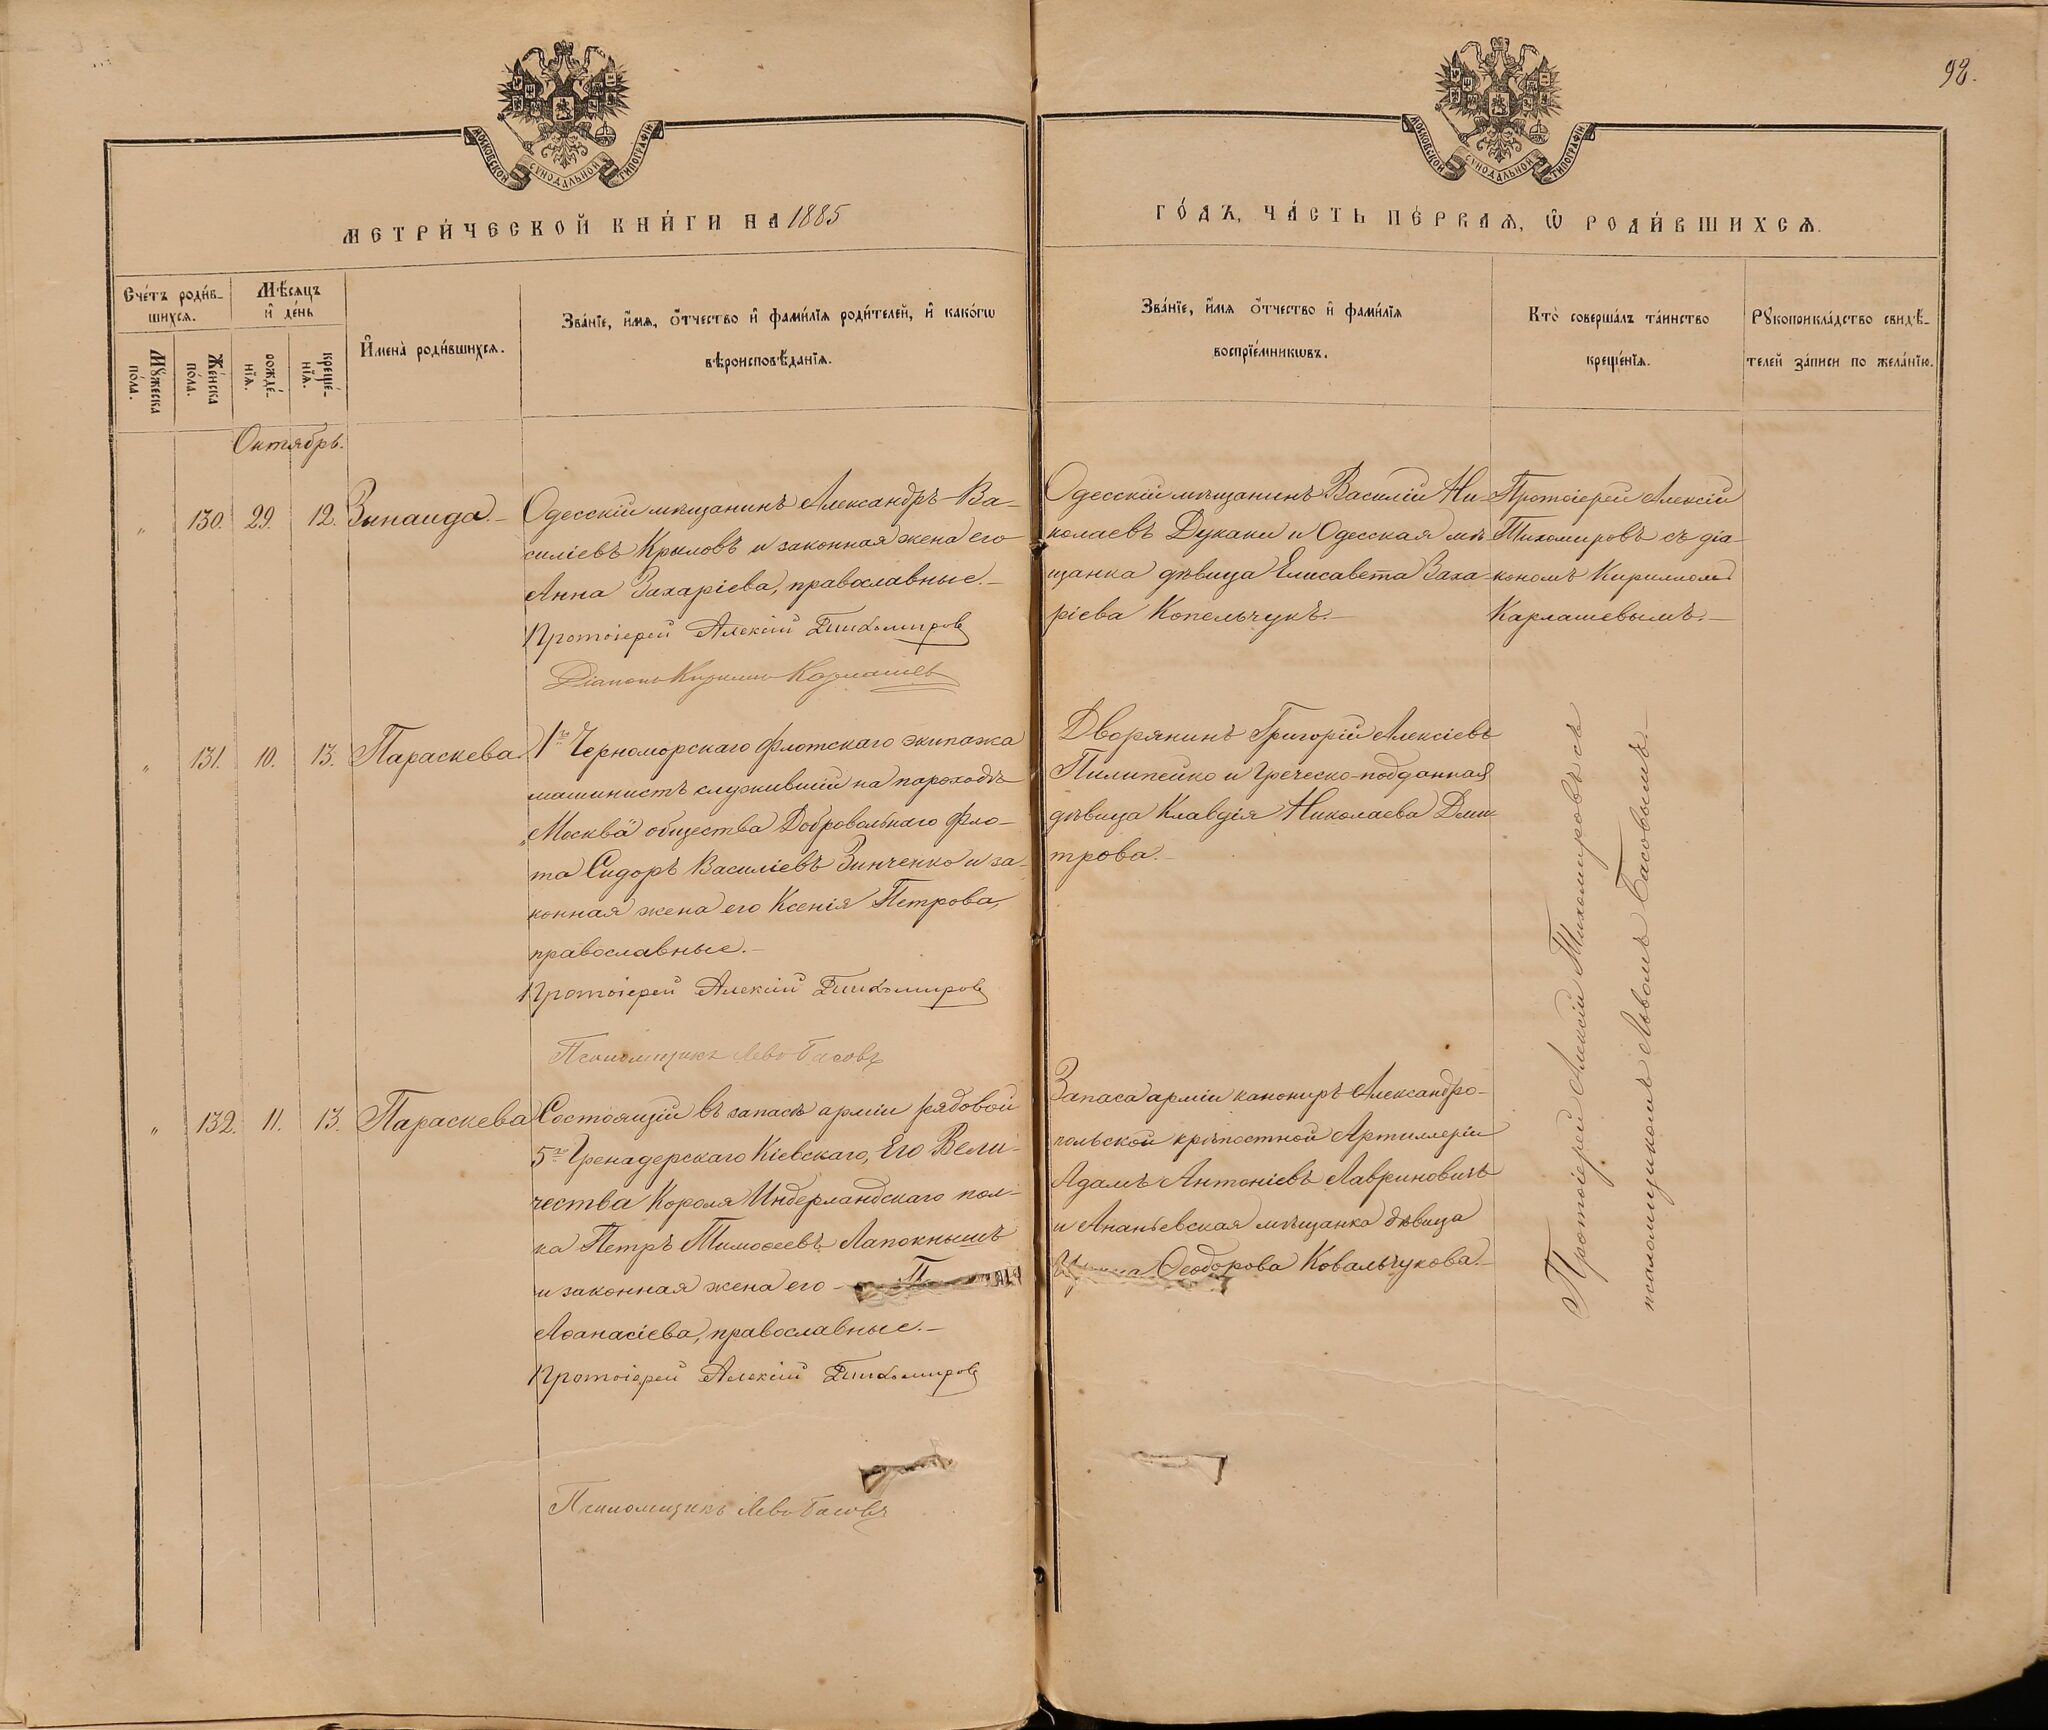 92.
МОСКОВСКОЙ СѴНОДАЛЬНОЙ ТИПОГРАФІИ
МОСКОВСКОЙ СѴНОДАЛЬНОЙ ТИПОГРАФІИ
МЕТРИ́ЧЕСКОЙ КНИ́ГИ НА 1885
ГО́ДЪ, ЧА́СТЬ ПЕ́РВАѦ, Ѡ҆ РОДИ́ВШИХСѦ.
Сче́тъ роди́в-
шихсѧ.
Мꙋ́жеска
по́ла.
Же́нска
по́ла.
Мѣ́сѧцъ
и҆ де́нь
рожде́-
нїѧ.
креще́-
нїѧ.
И҆мена̀ роди́вшихсѧ.
Зва́нїе, и҆́мѧ, ѻ҆́тчество и҆ фами́лїѧ роди́телей, и҆ како́гѡ
вѣроисповѣ́данїѧ.
Зва́нїе, и҆́мѧ ѻ҆́тчество и҆ фами́лїѧ
воспрїе́мникѡвъ.
Кто̀ соверша́лъ та́инство
креще́нїѧ.
Рꙋкоприкла́дство свидѣ́-
телей за́писи по жела́нїю.
Октябрь.
" 130. 29. 12. Зинаида.-
Одесскій мѣщанинъ Александръ Ва-
силіевъ Крыловъ и законная жена его
Анна Захаріева, православные.-
Протоіерей Алексій Тихомировъ
Діаконъ Кириллъ Карлашевъ
Одесскій мѣщанинъ Василій Ни-
колаевъ Дукаки и Одесская мѣ-
щанка дѣвица Елисавета Заха-
ріева Копельчукъ.-
Протоіерей Алексій
Тихомировъ съ діа-
кономъ Кирилломъ
Карлашевымъ.-
" 131. 10. 13. Параскева.
1го Черноморскаго флотскаго экипажа
машинистъ служившій на пароходѣ
„Москва" общества Добровольнаго фло-
та Сидоръ Василіевъ Зинченко и за-
конная жена его Ксенія Петрова,
православные.-
Протоіерей Алексій Тихомировъ
Псаломщикъ Левъ Басовъ
Дворянинъ Григорій Алексіевъ
Пилипейко и Греческо-подданная
дѣвица Клавдія Николаева Дми-
трова.-
Протоіерей Алексій Тихомировъ съ
псаломщикомъ Львомъ Басовымъ.-
" 132. 11. 13. Параскева
Состоящій въ запасѣ арміи рядовой
5го Гренадерскаго Кіевскаго, Его Вели-
чества Короля Нидерландскаго пол-
ка Петръ Тимоѳеевъ Лапокнышъ
и законная жена его
Аѳанасіева, православные.-
Протоіерей Алексій Тихомировъ
Псаломщикъ Левъ Басовъ
Запаса арміи канониръ Александро-
польской крѣпостной Артиллеріи
Адамъ Антоніевъ Лавриновичъ
и Ананьевская мѣщанка дѣвица
Ѳеодорова Ковальчукова.-